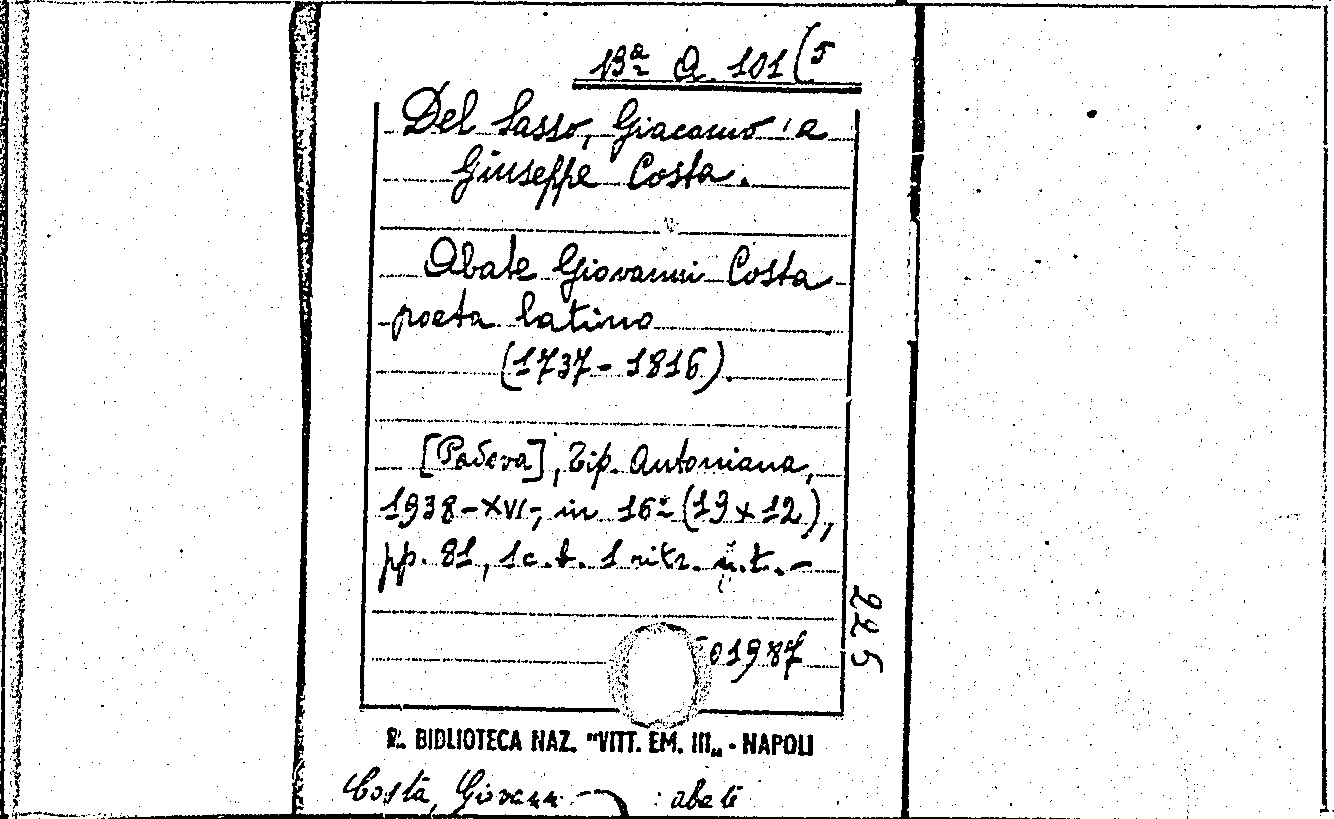 Bª Q. 101(5
Del Sasso, Giacomo e
Giuseppe Costa.
Abate Giovanni Costa
poeta latino
(1737-1816).
[Padova], Tip. Antoniana,
1938-XVI-, in 16º (19 x 12),
pp. 81, 1 c. b. 1 ritr. n.t.-
01987
225
R. BIBLIOTECA NAZ. "VITT. EM. III„ - NAPOLI
Costa, Giovanni : abate